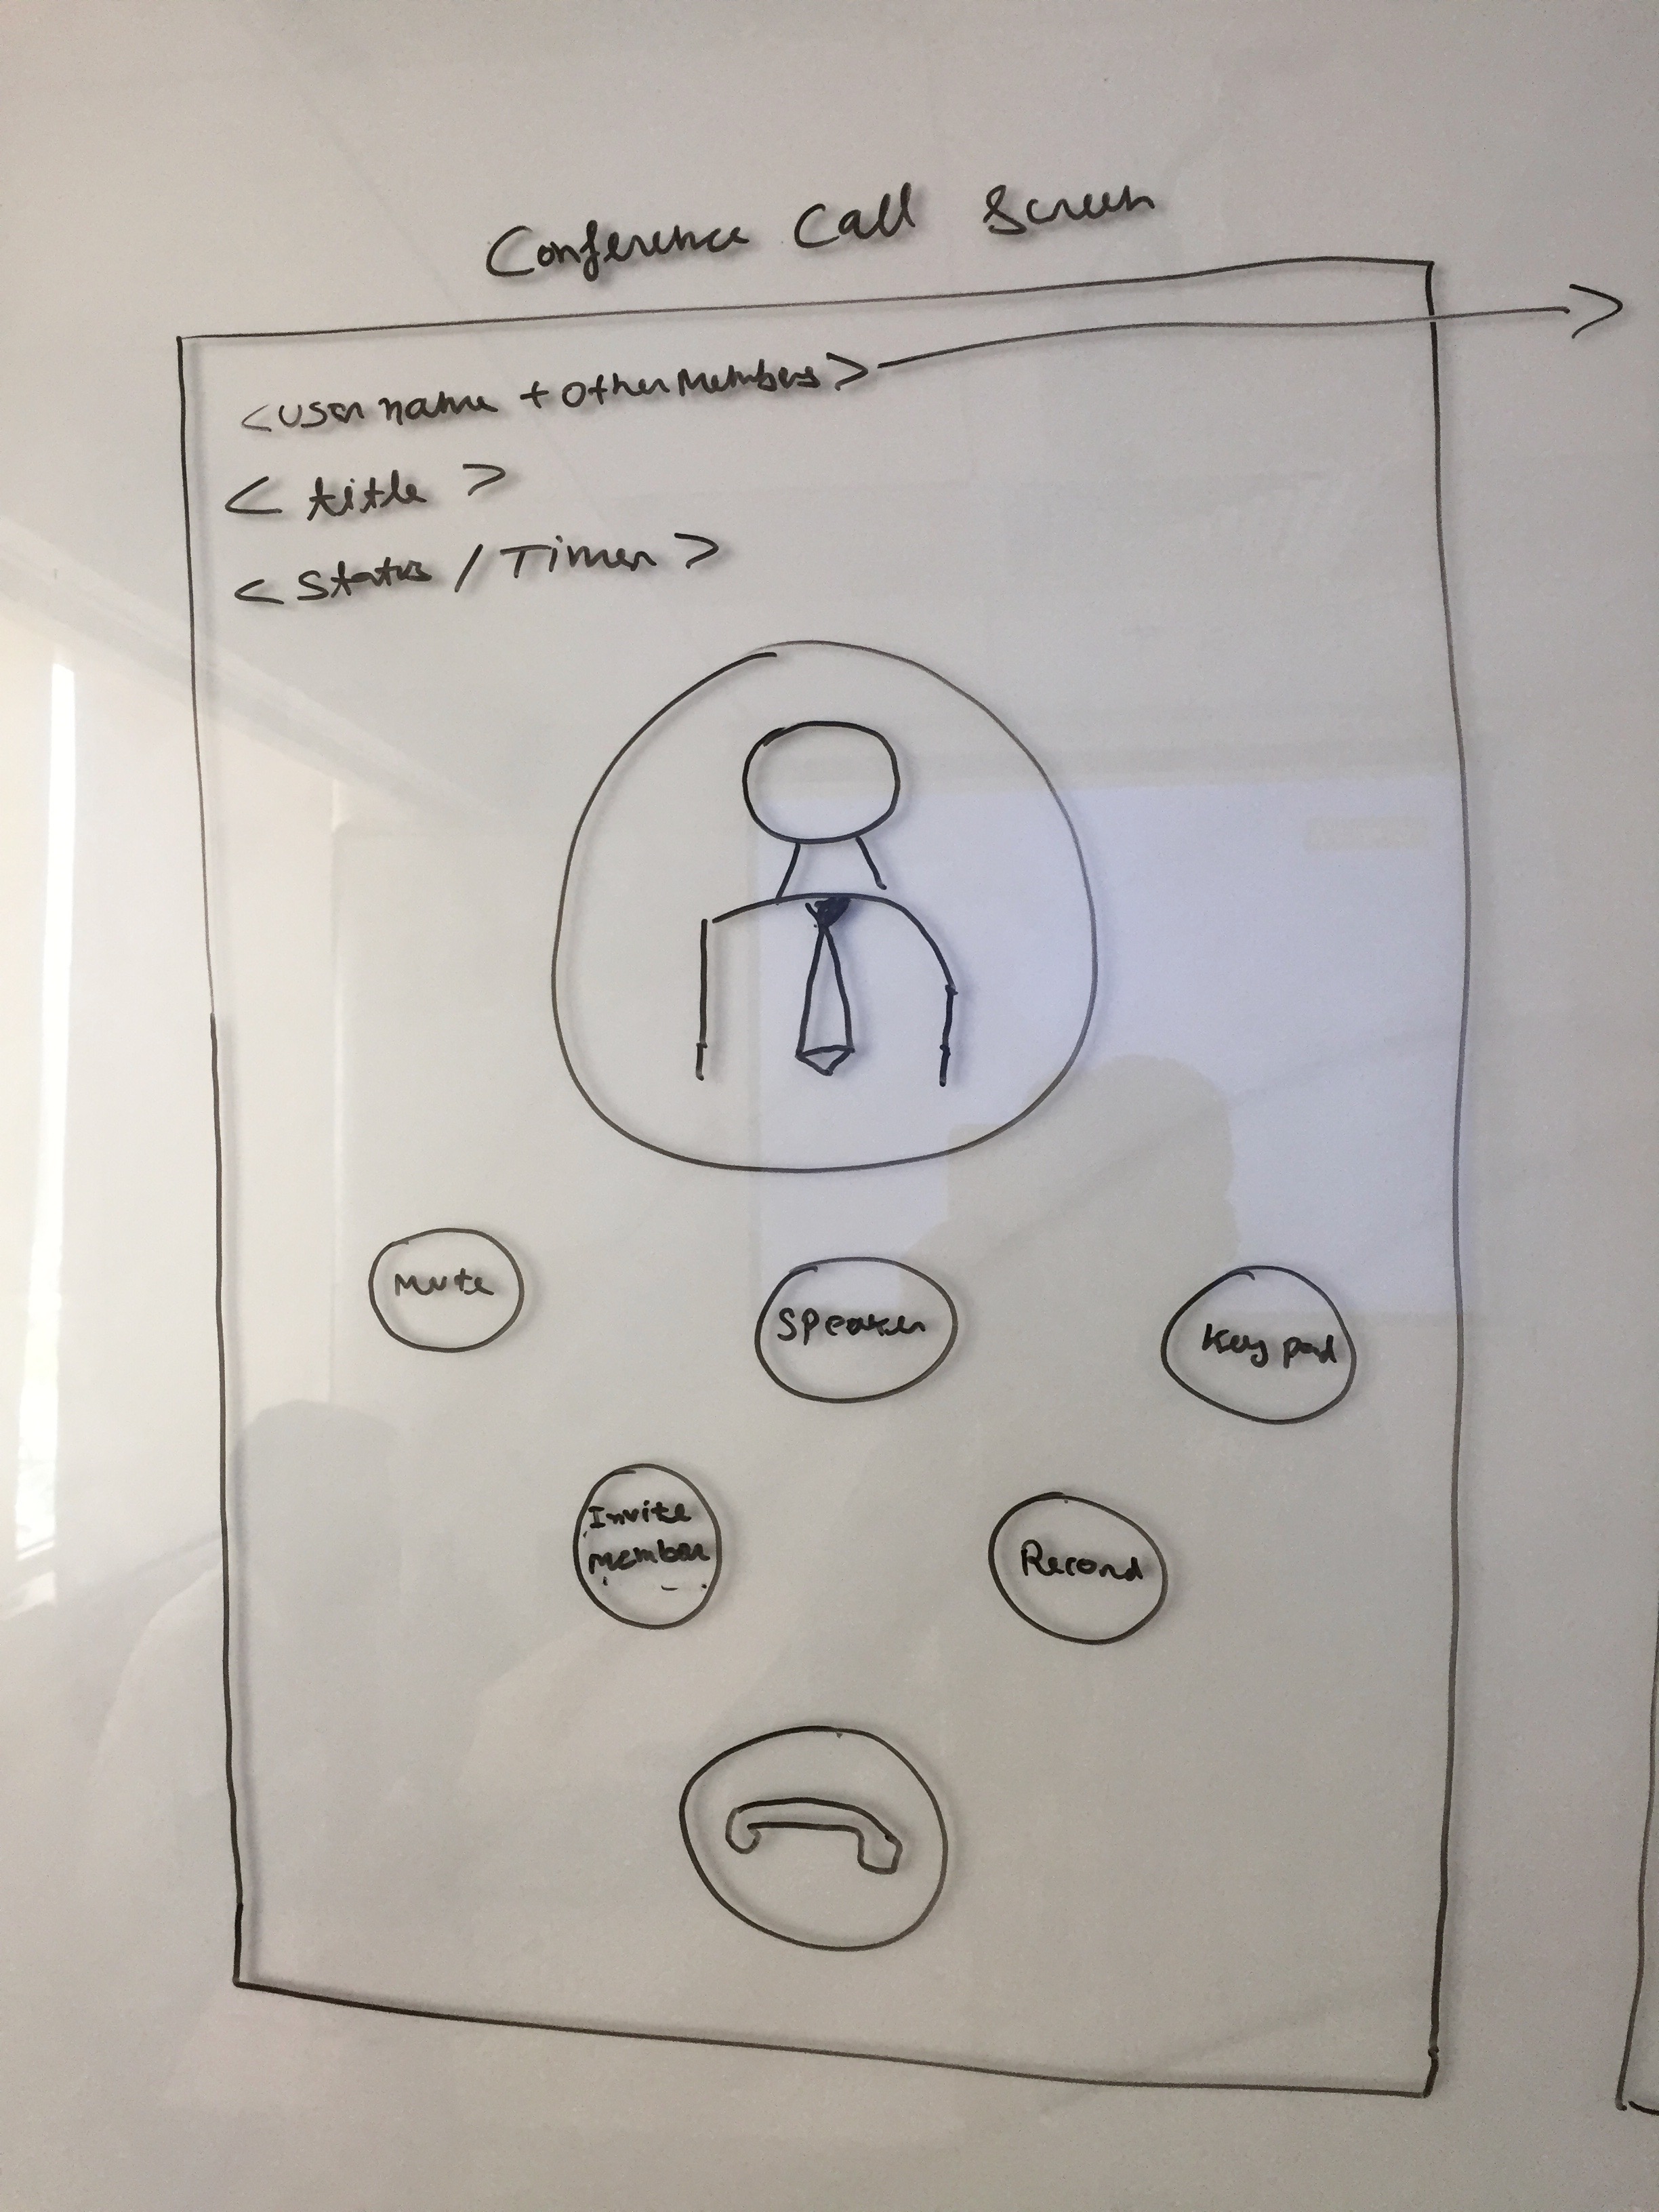 Conference Call Screen
<User name + OtherMembers>
< title >
< Status / Timer >
Mute
Speaker
Key pad
Invite
Member
Record